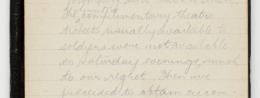 The complimentary theatre
tickets usually available to
soldiers were not available
on Saturday evenings, much
to our regret. Then we
proceeded to obtain accom-